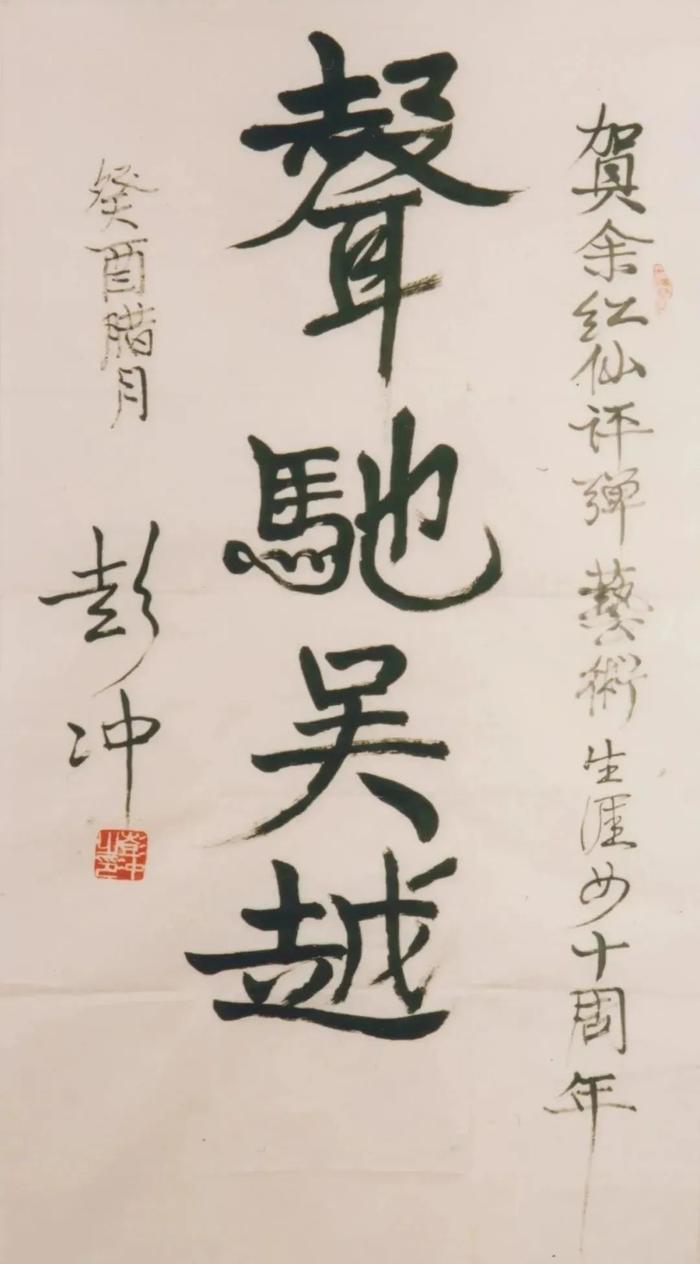 賀余红仙评彈藝術生涯四十周年
聲馳吴越
癸酉腊月
彭冲
彭冲之印